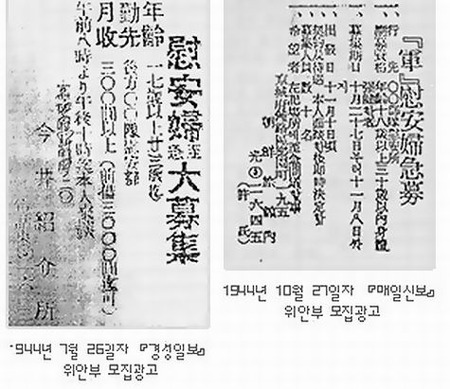 慰安婦至急大募集
年齢 一七歳以上廿三歳迄
勤先 後方〇〇隊慰安部
月收 三〇〇圓以上(前借三〇〇〇圓迄可)
午前八時より午後十時迄本人來談
今井紹介所
1944년 7월 26일자 『경성일보』
위안부 모집광고
『軍』慰安婦急募
一、行先 〇〇部隊慰安所
一、應募資格 年齡十八歳以上三十歳以内身體
一、募集期日 十月二十七日부터十一月八日
一、出發日 十一月十日頃
一、契約及待遇 本人面談後即時決定함
一、募集人員 数十名
一、希望者
朝鮮旅館内
光③二六四五
(許氏)
1944년 10월 27일자 『매일신보』
위안부 모집광고